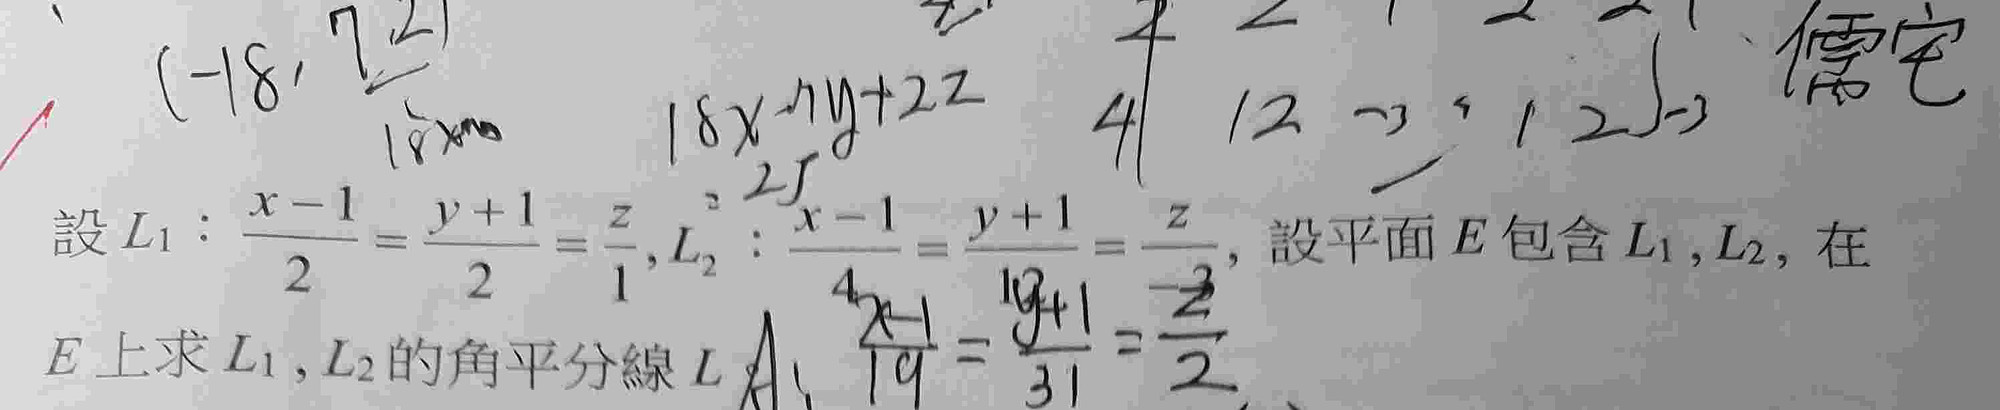 (-18, 7, 2)
18x-7y+2z
=25
4 12 -3 4 12 -3
儒宅
設 L₁ : \frac{x-1}{2} = \frac{y+1}{2} = \frac{z}{1}, L₂ : \frac{x-1}{4} = \frac{y+1}{12} = \frac{z}{-3}, 設平面 E 包含 L₁, L₂, 在
E 上求 L₁, L₂ 的角平分線 L A: \frac{x-1}{19} = \frac{y+1}{31} = \frac{z}{2}